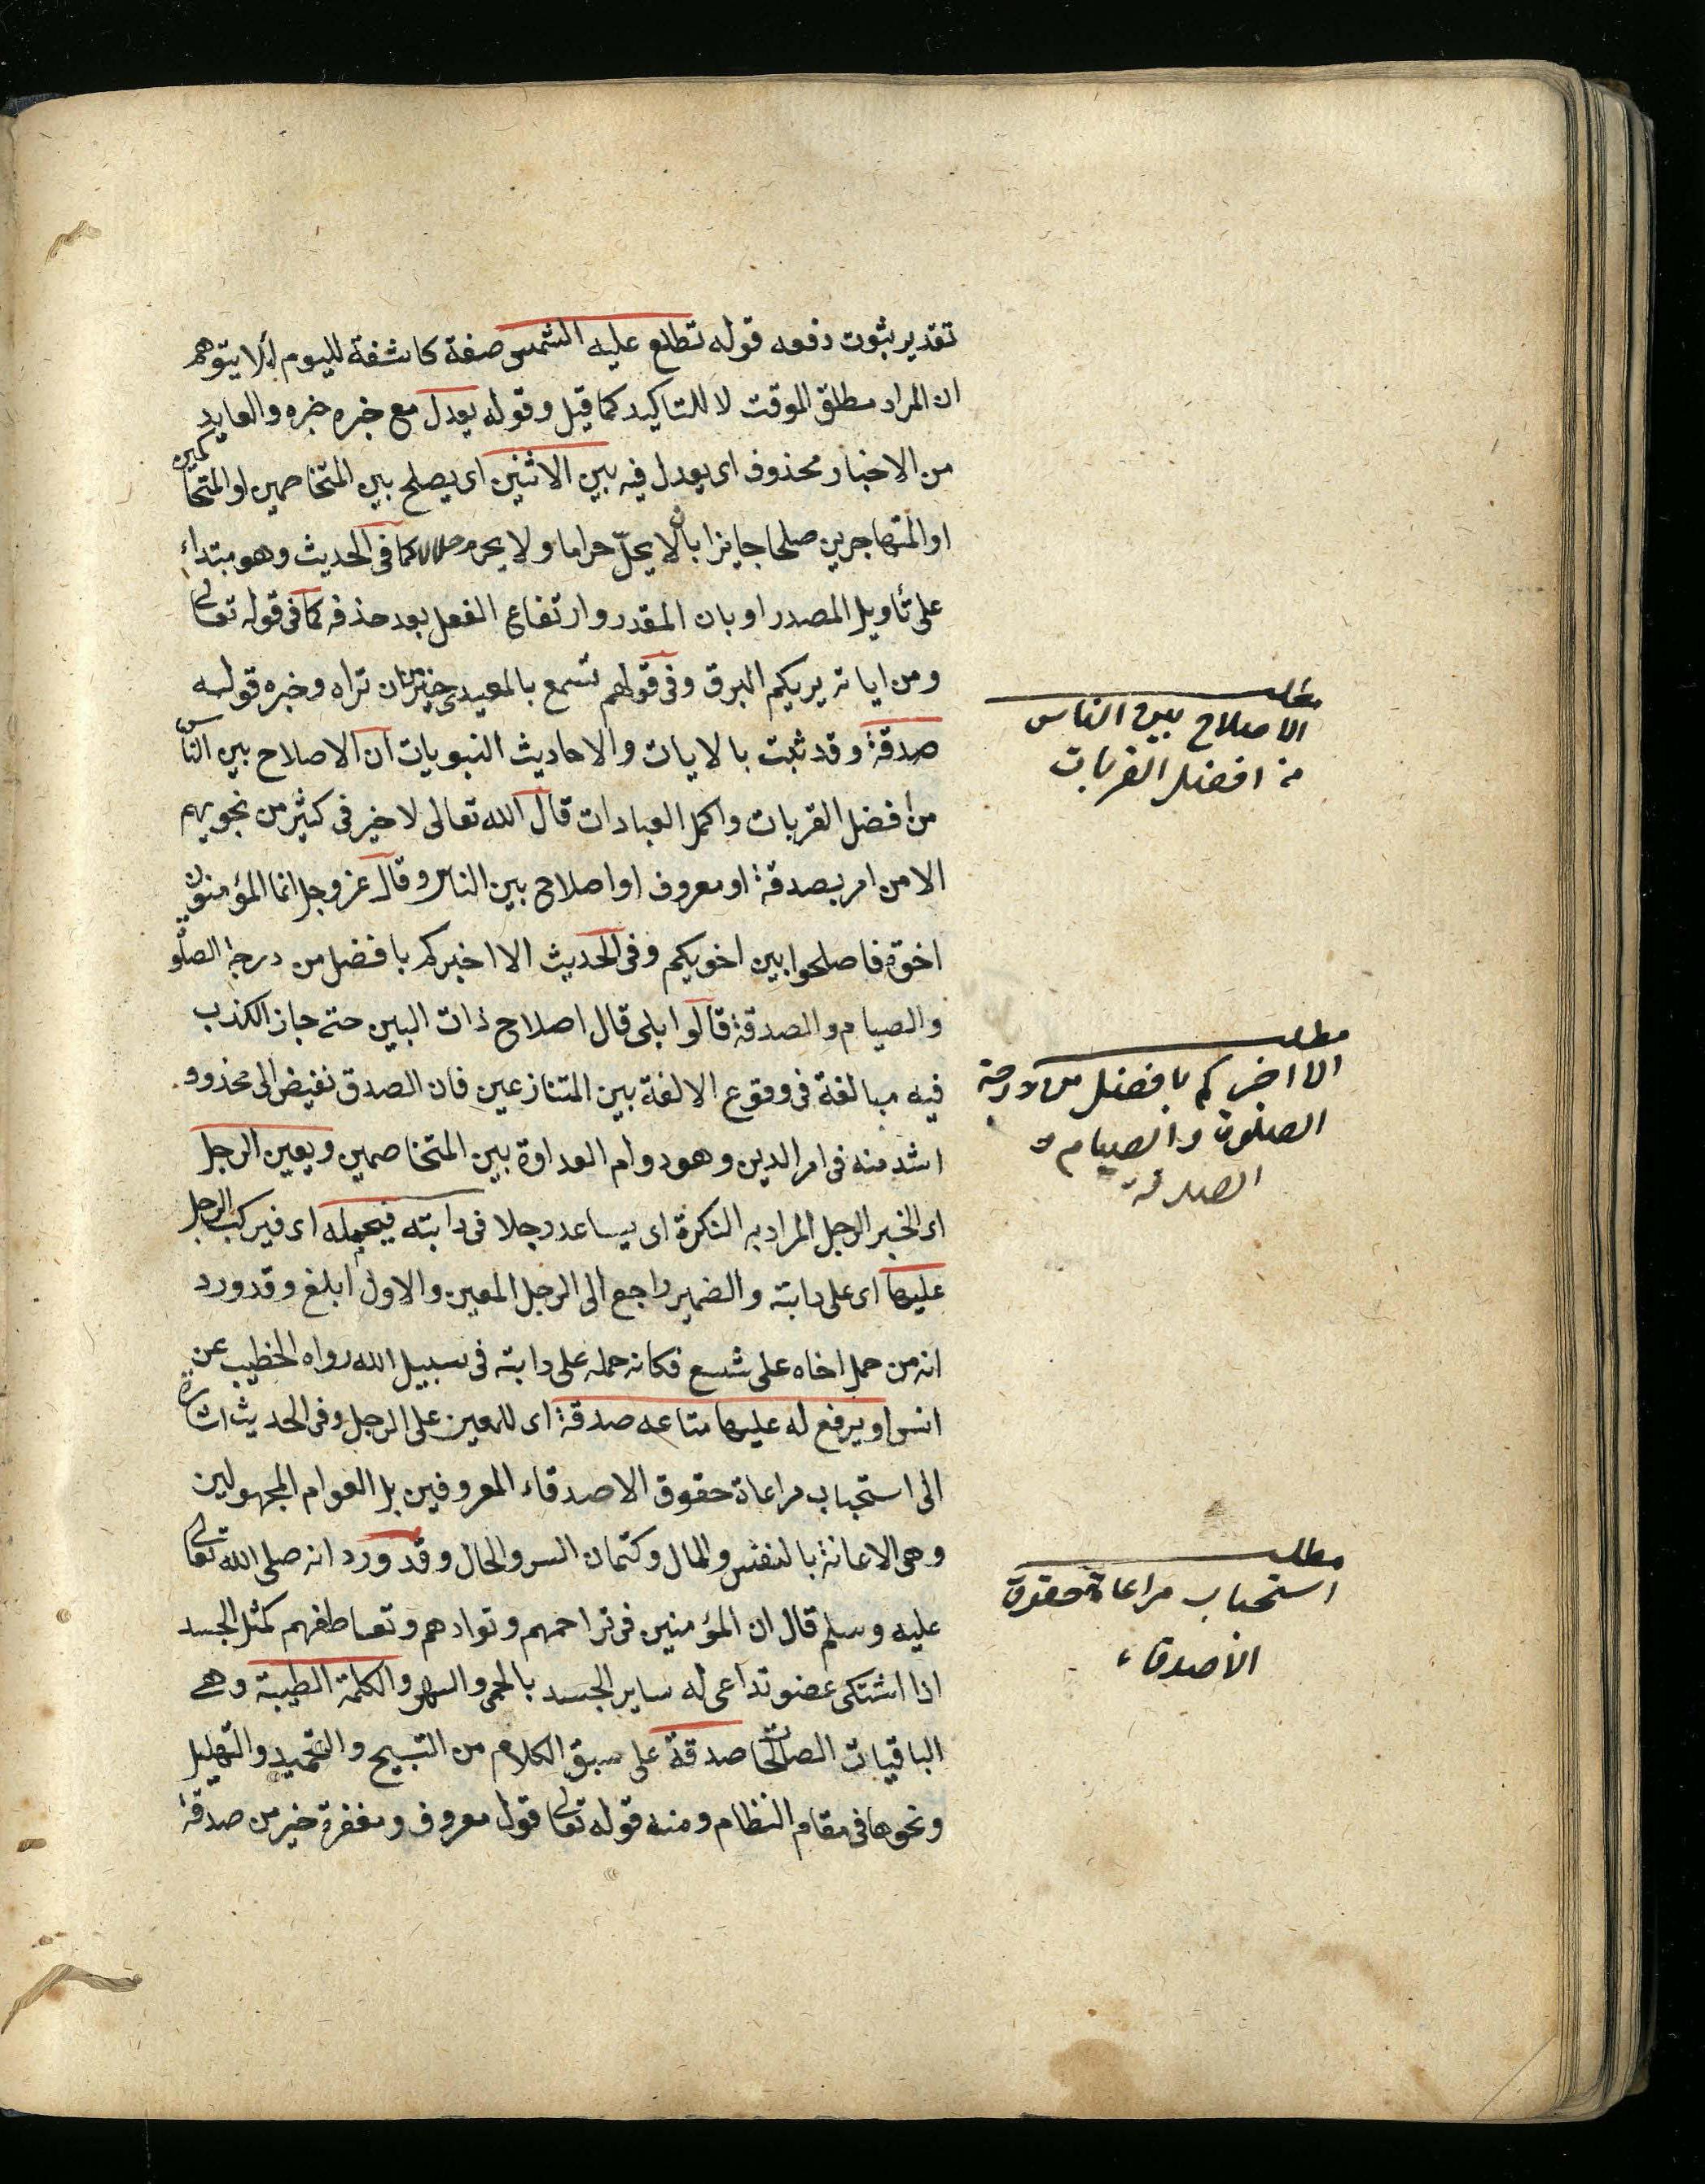 تقدير ثبوت رفعه قوله تطلع عليه الشمس صفة كاشفة لليوم لئلا يتوهم
ان المراد مطلق الوقت لا للتاكيد كما قيل وقوله يعدل مع خبره خبره والعايد
من الاخبار محذوف اى يعدل فيه بين الاثنين اى يصلح بين المتخاصمين او المتحاكمين
او المتهاجرين صلحا جايزا بان لا يحلّ حراما ولا يحرم حلالا كما فى الحديث وهو مبتداء
على تأويل المصدر او بان المقدر وارتفاع الفعل بعد حذفه كما فى قوله تعالى
ومن اياته يريكم البرق وفى قولهم تسمع بالمعيدى خير من ان تراه وخبره قوله
صدقة وقد ثبت بالايات والاحاديث النبويات ان الاصلاح بين الناس
من افضل القربات واكمل العبادات قال الله تعالى لا خير فى كثير من نجويهم
الا من امر بصدقة او معروف او اصلاح بين الناس وقال عز وجل انما المؤمنون
اخوة فاصلحوا بين اخويكم وفى الحديث الا اخبركم بافضل من درجة الصلوة
والصيام والصدقة قالوا بلى قال اصلاح ذات البين حتى جاز الكذب
فيه مبالغة فى وقوع الالفة بين المتنازعين فان الصدق نفيض الى محذور
اشد منه فى امر الدين وهو دوام العداوة بين المتخاصمين ويعين الرجل
اى الخبر الرجل المراد به النكرة اى يساعد رجلا فى دابته فيحمله اى فيركب الرجل
عليها اى على دابته والضمير راجع الى الرجل المعين والاول ابلغ وقد ورد
انه من حمل اخاه على شسع فكانه حمله على دابة فى سبيل الله رواه الخطيب عن
انس او يرفع له عليها متاعه صدقة اى للمعين على الرجل وفى الحديث اشارة
الى استحباب مراعاة حقوق الاصدقاء المعروفين بل العوام المجهولين
وهى الاعانة بالنفس والمال وكتمان السر والحال وقد ورد انه صلى الله تعالى
عليه وسلم قال ان المؤمنين فى تراحمهم وتوادهم وتعاطفهم كمثل الجسد
اذا اشتكى عضو تداعى له ساير الجسد بالحمى والسهر والكلمة الطيبة وهى
الباقيات الصالحات صدقة على سبق الكلام من التسبيح والتحميد والتهليل
ونحوها فى مقام النظام ومنه قوله تعالى قول معروف ومغفرة خير من صدقة
مطلب
الاصلاح بين الناس
من افضل القربات
مطلب
الا اخبركم بافضل من درجة
الصلوة والصيام و
الصدقة
مطلب
استحباب مراعاة حقوق
الاصدقاء